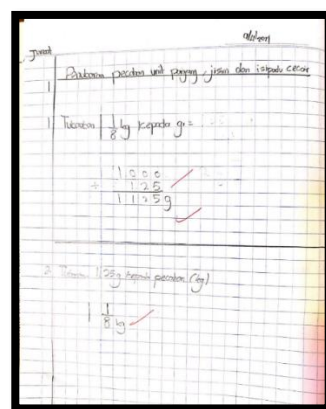 Jumat
pecahan unit panjang, jisim dan isipadu cecair
1
1 Tukarkan 1 1/8 kg kepada g =
1000
+ 125
1125g
2 1125g kepada pecahan (kg)
1 1/8 kg